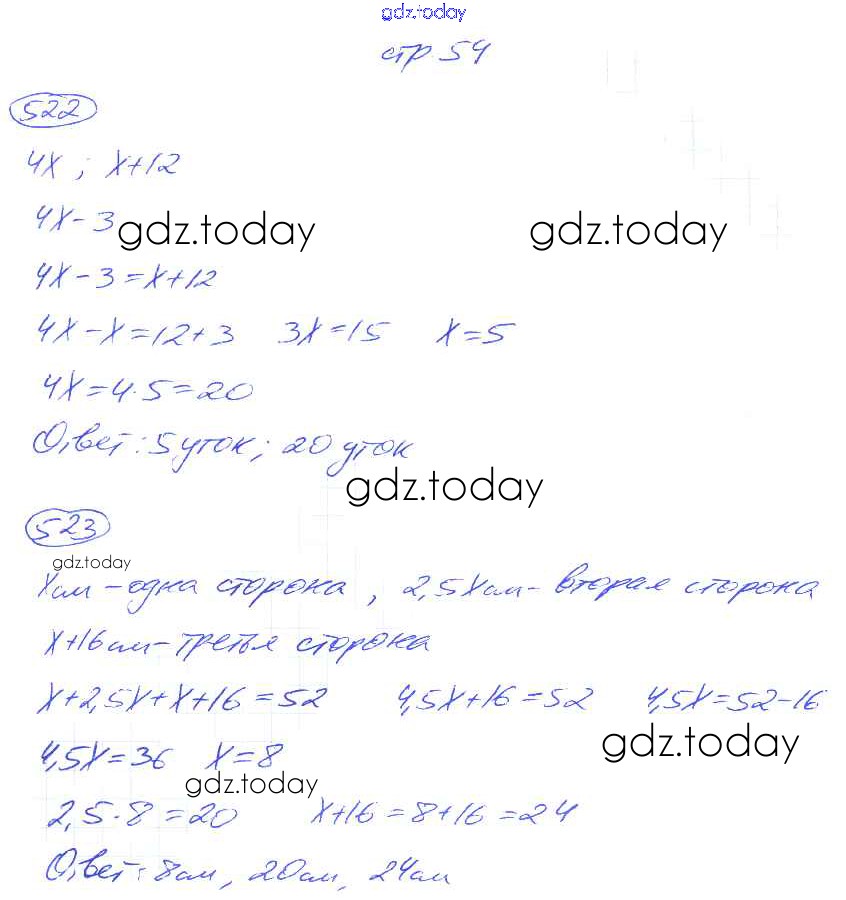 gdz.today
стр 54
522
4x ; x+12
4x-3
gdz.today gdz.today
4x-3=x+12
4x-x=12+3 3x=15 x=5
4x=4·5=20
Ответ: 5 уток; 20 уток
gdz.today
523
gdz.today
x см - одна сторона, 2,5x см - вторая сторона
x+16 см - третья сторона
x+2,5x+x+16=52 4,5x+16=52 4,5x=52-16
gdz.today
4,5x=36 x=8
gdz.today
2,5·8=20 x+16=8+16=24
Ответ: 8 см, 20 см, 24 см